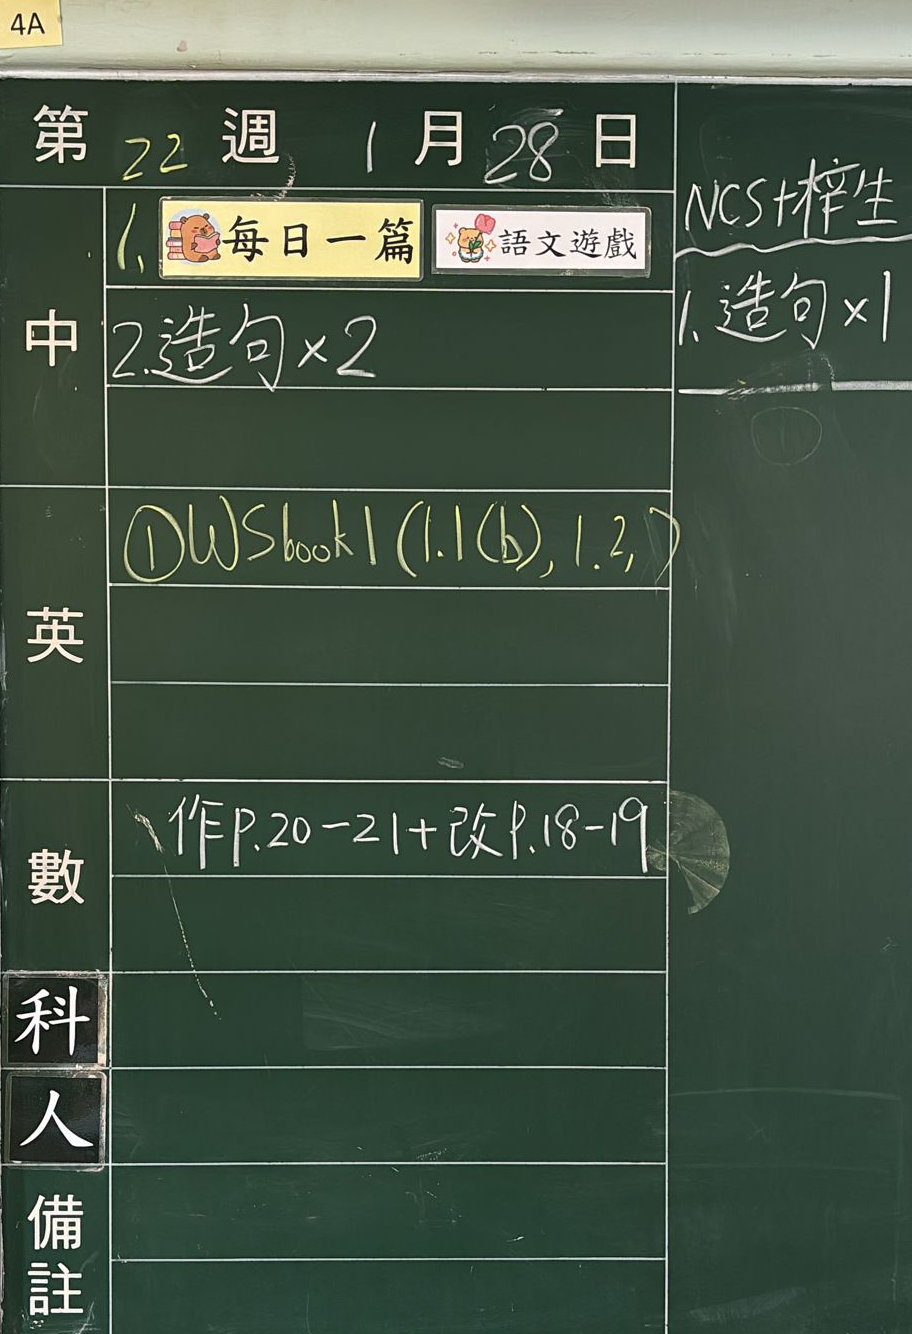 4A
第 22 週 1 月 28 日
中
1. 每日一篇 語文遊戲
2.造句×2
英
①WSbook1 (1.1(b), 1.2, )
數
作P.20-21+改P.18-19
科
人
備註
NCS+梓生
1.造句×1